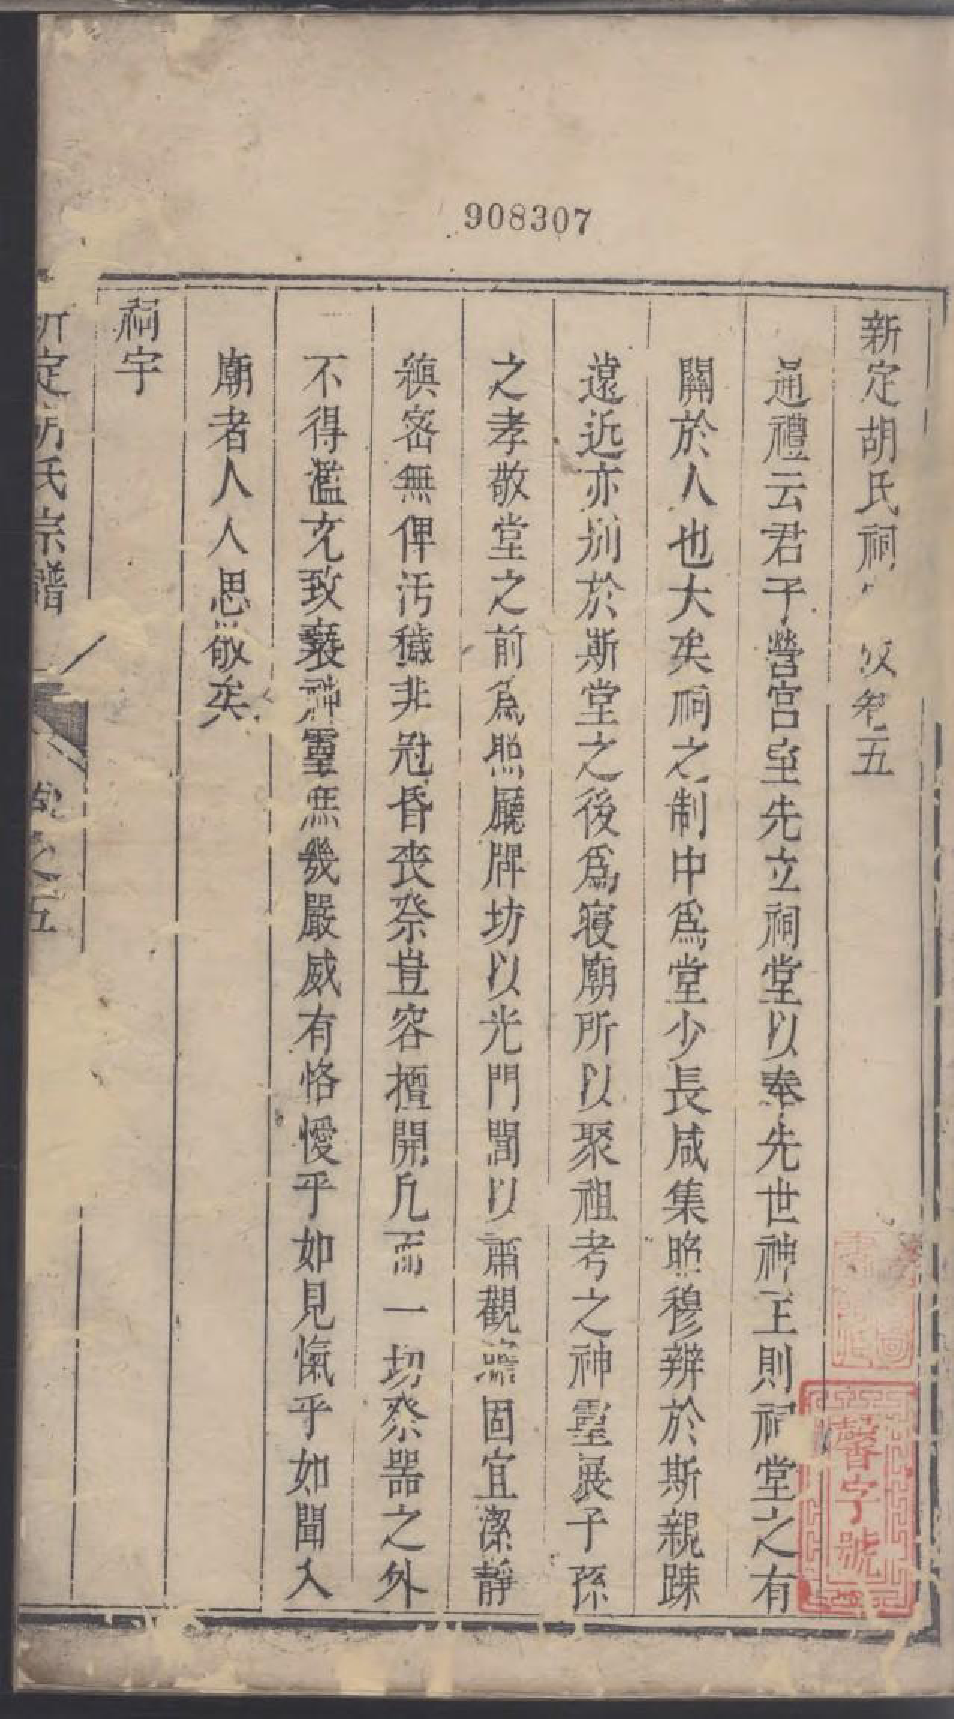 908307
新定胡氏祠卷五
通禮云君子營宮室先立祠堂以奉先世神主則祠堂之有
關於人也大矣祠之制中爲堂少長咸集昭穆辨於斯親踈
遠近亦別於斯堂之後爲寢廟所以聚祖考之神靈展子孫
之孝敬堂之前爲照廳牌坊以光門閭以肅觀瞻固宜潔靜
縝密無俾汚穢非冠昏喪祭豈容擅開凡而一切祭器之外
不得濫充致䙝神靈庶幾嚴威有恪優乎如見愾乎如聞入
廟者人人思敬矣
祠宇
新定胡氏宗譜
卷之五
馨字號